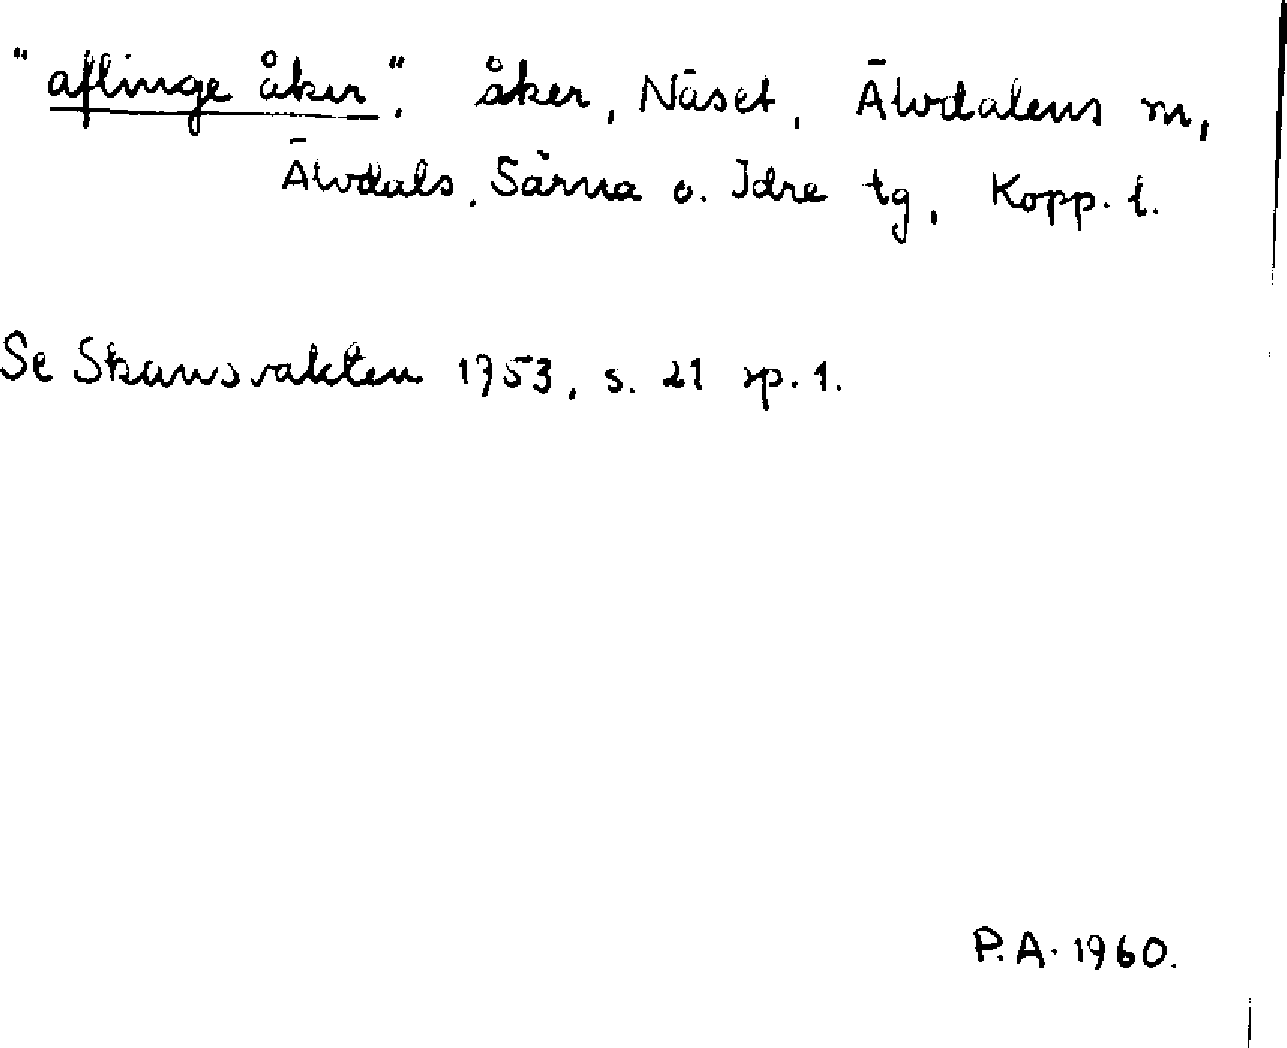 "aflinge åker", åker, Näset, Älvdalens m,
Älvdals, Särna o. Idre tg, Kopp. l.
Se Skansvakten 1953, s. 21 sp. 1.
P.A. 1960.